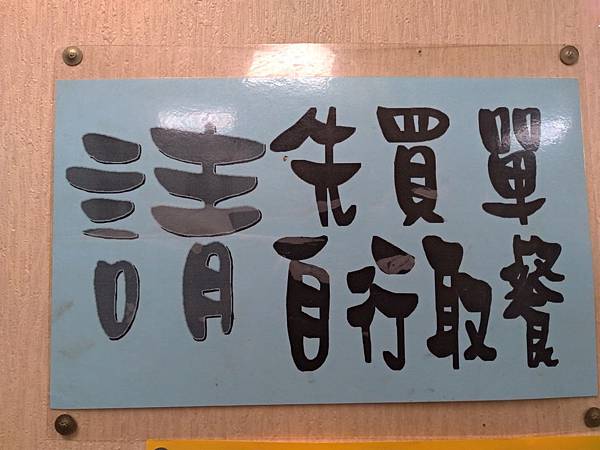 請
先買單
自行取餐